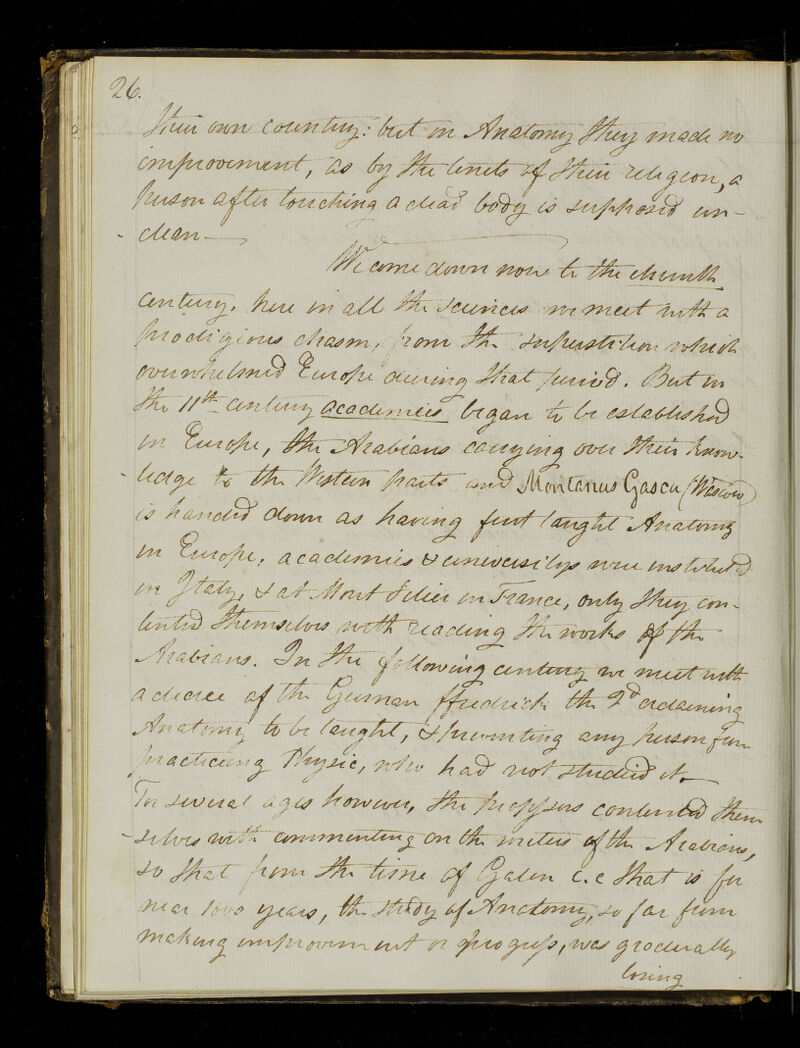 26.
their own country: but in Anatomy they made no
improvement, as by the tenets of their religion, a
person after touching a dead body is supposed un-
-clean—
We come down now to the eleventh
century. here in all the sciences we meet with a
prodigious chasm, from the superstition which
overwhelmed Europe during that period. But in
the 11th century academies began to be established
in Europe, the Arabians carrying over their know-
-ledge to the Western parts and Montanus Gascu
is handed down as having first taught Anatomy
in Europe, academies & universitys were instituted
in Italy, & at Mont Pelier in France, only they con-
tented themselves with reading the works of the
Arabians. In the following century we meet with
a decree of the German ffredrick the 2d ordaining
Anatomy to be taught, & preventing any person from
practiceing Physic, who had not studied it.
For several ages however, the professors contented them
-selves with commenting on the writers of the Arabians,
so that from the time of Galen c.c that is for
near 1000 years, the study of Anatomy, so far from
making improvement or progress, was gradually
losing